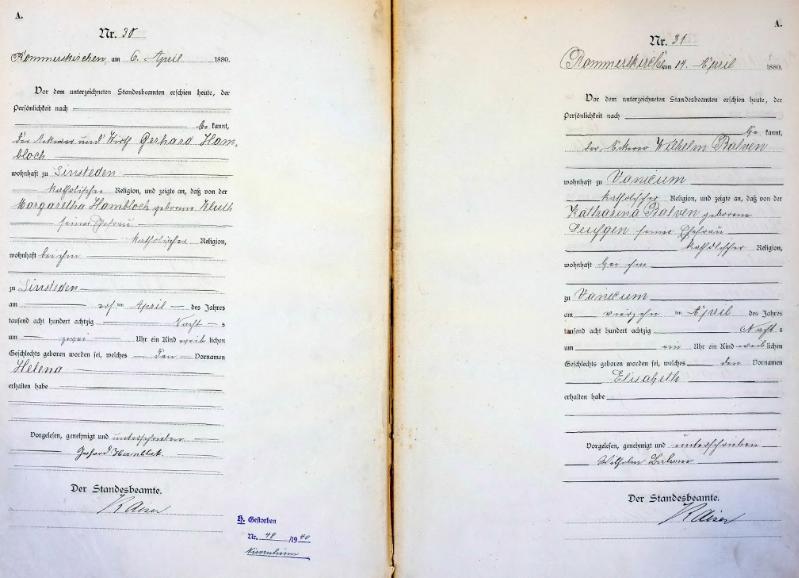 A.
Nr. 30
Rommerskirchen, am 6. April 1880.
Vor dem unterzeichneten Standesbeamten erschien heute, der
Persönlichkeit nach
be kannt,
der Ackerer und Wirth Gerhard Ham-
bloch
wohnhaft zu Sinsteden
katholischer Religion, und zeigte an, daß von der
Margaretha Hambloch geborene
seiner Ehefrau
katholischer Religion,
wohnhaft bei ihm
zu Sinsteden
am April des Jahres
tausend acht hundert achtzig Nacht s
um zwei Uhr ein Kind weib lichen
Geschlechts geboren worden sei, welches den Vornamen
Helena
erhalten habe
Vorgelesen, genehmigt und unterschrieben
Gerhard Hambloch
Der Standesbeamte.
Kaiser
H. Gestorben
Nr. 48 /1940
A.
Nr. 31
Rommerskirchen am 14. April 1880.
Vor dem unterzeichneten Standesbeamten erschien heute, der
Persönlichkeit nach
be kannt,
der Ackerer Wilhelm
wohnhaft zu Vanikum
katholischer Religion, und zeigte an, daß von der
Katharina geborene
seiner Ehefrau
katholischer Religion,
wohnhaft bei ihm
zu Vanikum
am vierzehn ten April des Jahres
tausend acht hundert achtzig Nacht s
um ein Uhr ein Kind weib lichen
Geschlechts geboren worden sei, welches den Vornamen
Elisabeth
erhalten habe
Vorgelesen, genehmigt und unterschrieben
Wilhelm
Der Standesbeamte.
Kaiser